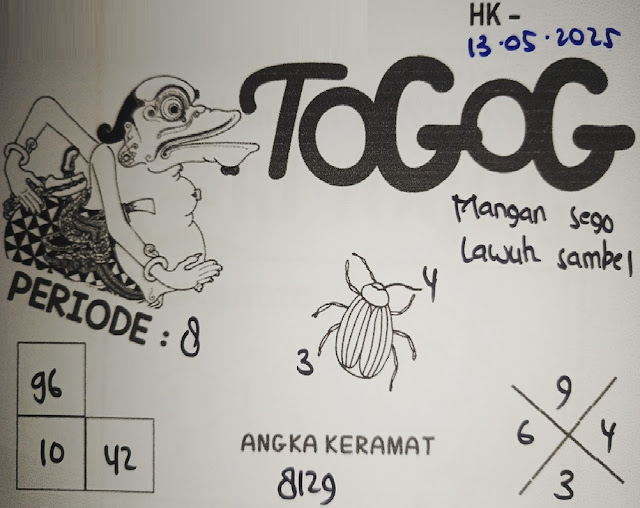 HK -
13.05.2025
TOGOG
Mangan sego
Lawuh sambel
PERIODE : 8
4
3
96
10 42
ANGKA KERAMAT
8129
9
6 4
3